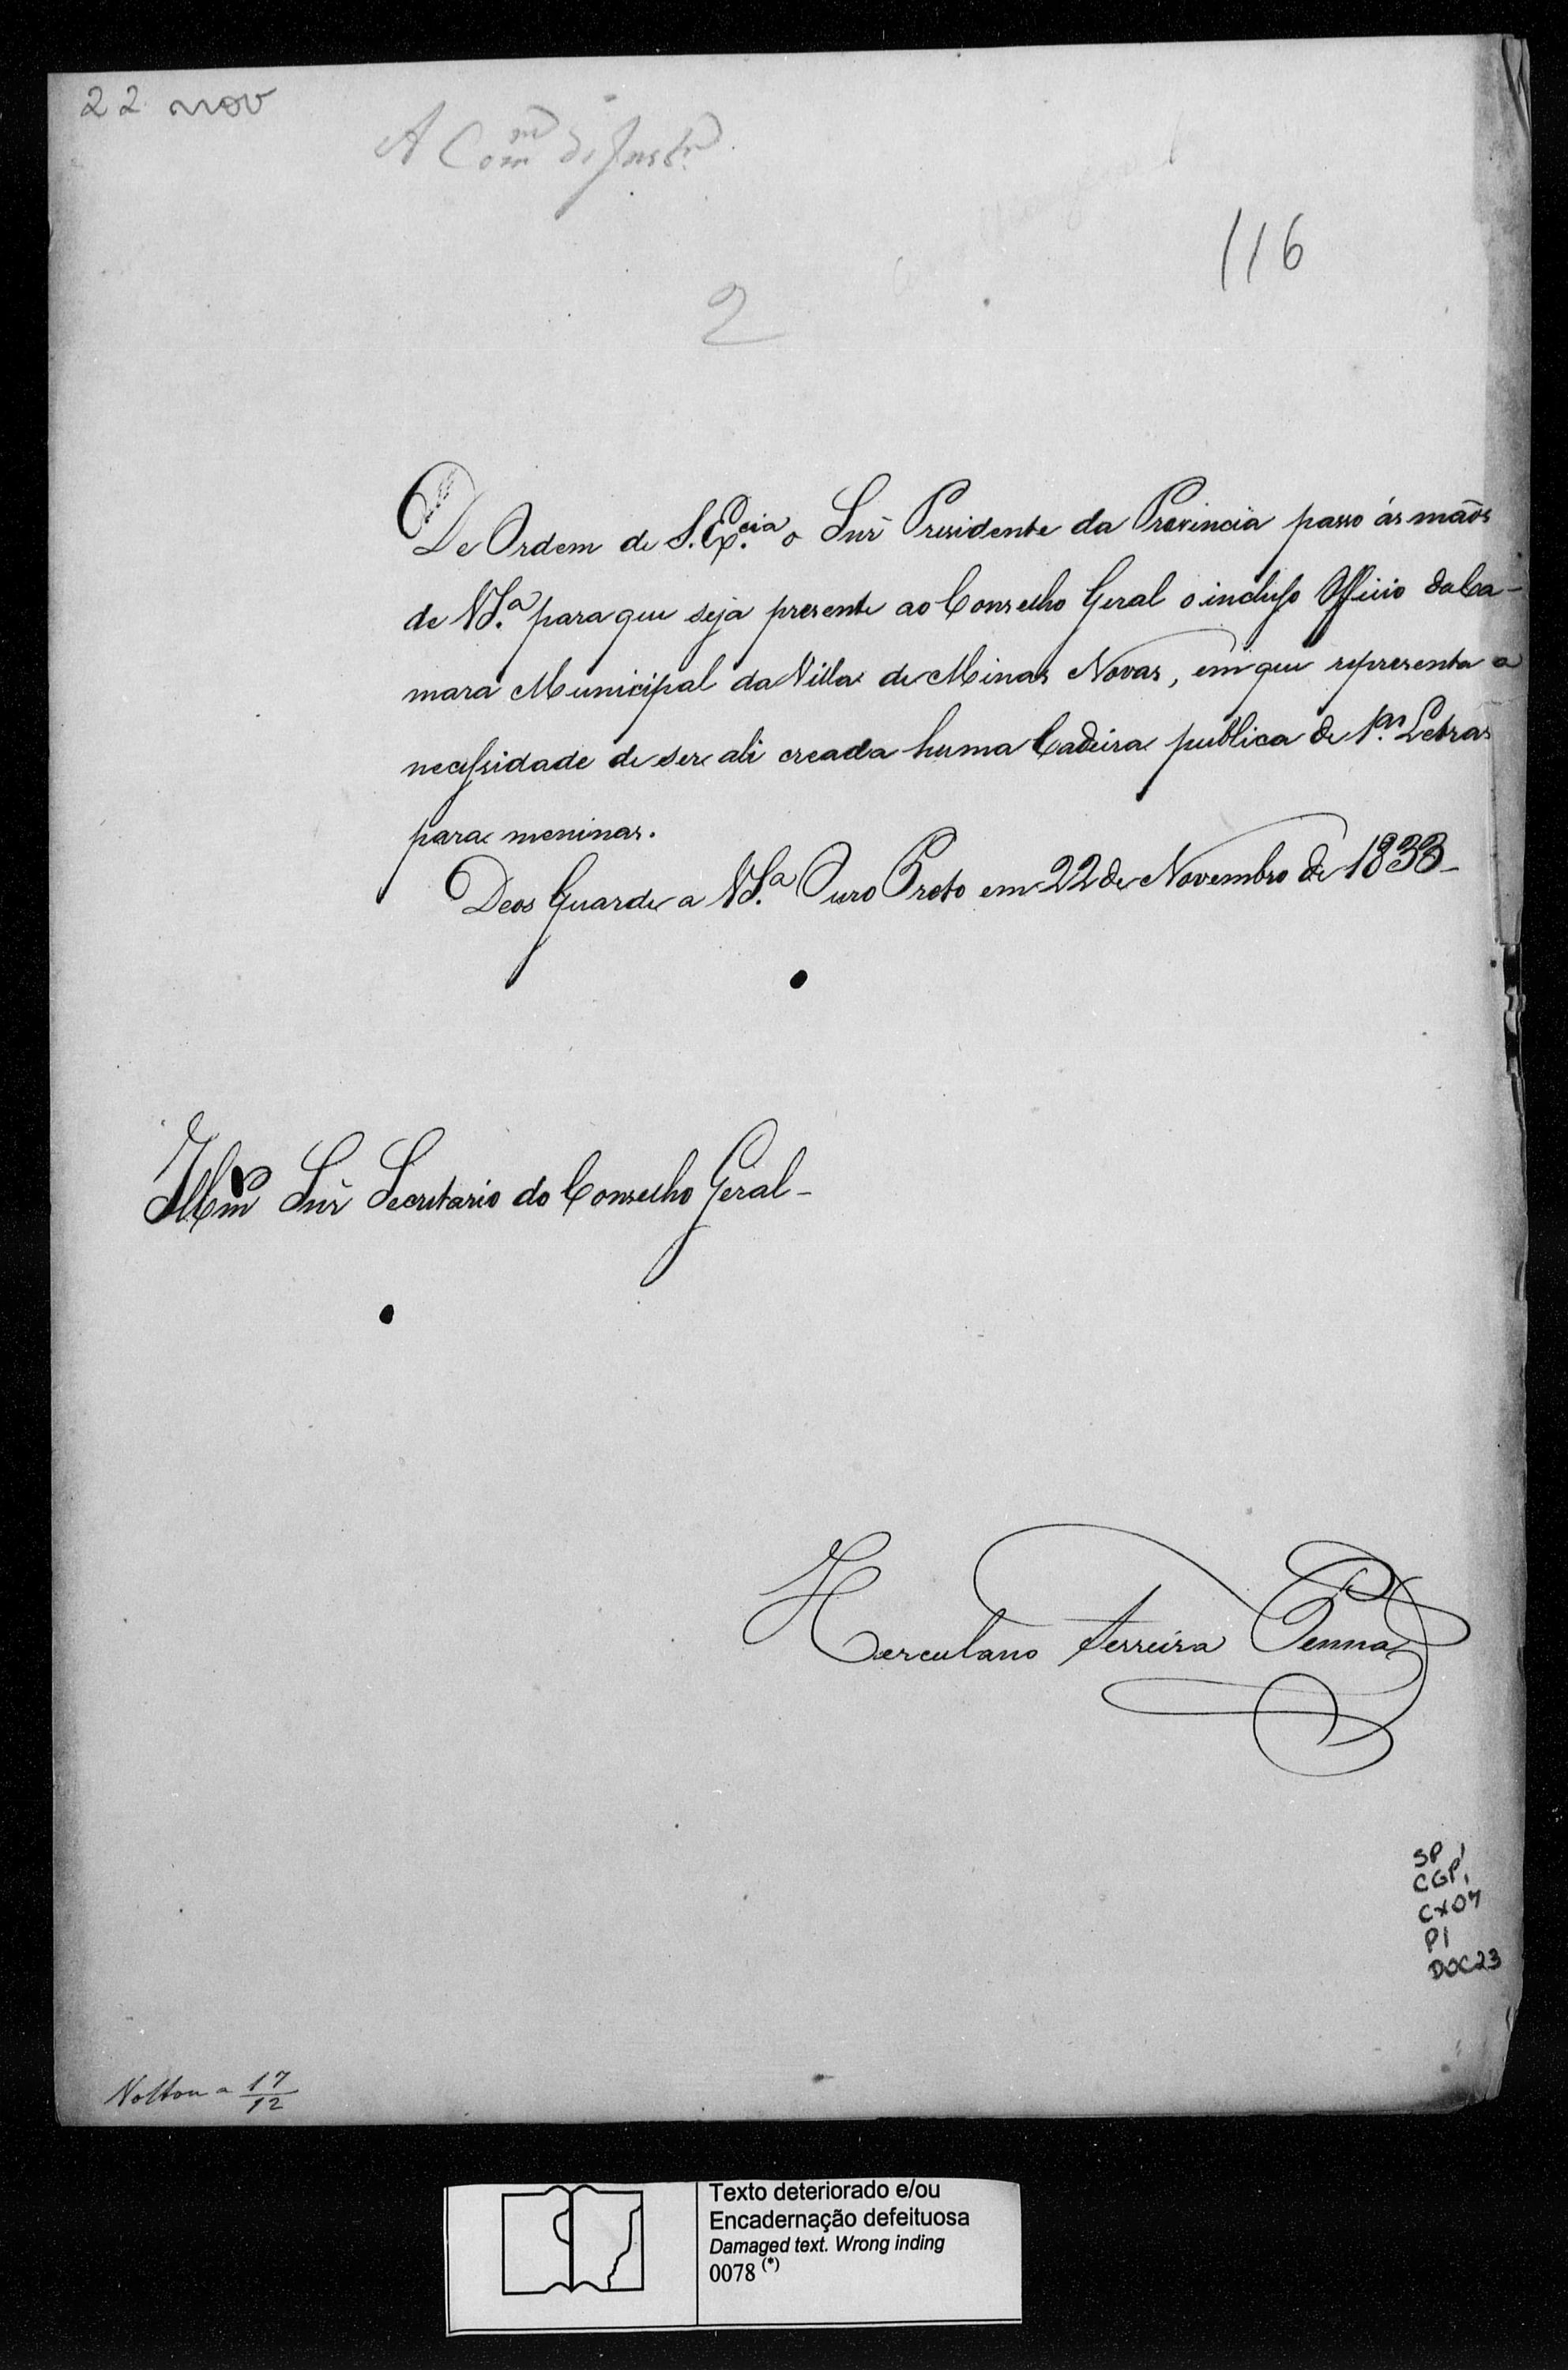 22 nov
A Com.m de Instr.
116
2
De Ordem de S. Ex.cia o Snr̃ Presidente da Provincia passo ás mãos
de VS.a para que seja presente ao Conselho Geral o incluso Officio da Ca-
mara Municipal da Villa de Minas Novas, em que representa a
necessidade de ser ali creada huma Cadeira publica de 1.as Letras
para meninas.
Deos Guarde a VS.a Ouro Preto em 22 de Novembro de 1833-
Illm̃o Snr̃ Secretario do Conselho Geral-
Herculano Ferreira Penna
SP
CGP1
CX07
P1
DOC23
Voltou a 17/12
Texto deteriorado e/ou
Encadernação defeituosa
Damaged text. Wrong inding
0078 (*)